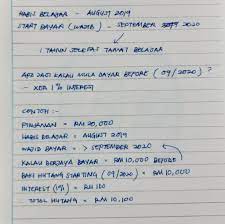 HABIS BELAJAR - AUGUST 2019
START BAYAR (WAJIB) - SEPTEMBER 2020
1 TAHUN SELEPAS TAMAT BELAJAR
APA JADI KALAU MULA BAYAR BEFORE (09/2020) ?
- XER 1% INTEREST
CONTOH :-
PINJAMAN = RM 20,000
HABIS BELAJAR = AUGUST 2019
WAJIB BAYAR = > SEPTEMBER 2020
KALAU BERJAYA BAYAR = RM 10,000 BEFORE
BAKI HUTANG STARTING (09/2020) = RM 10,000
INTEREST (1%) = RM 100
TOTAL HUTANG = RM 10,100